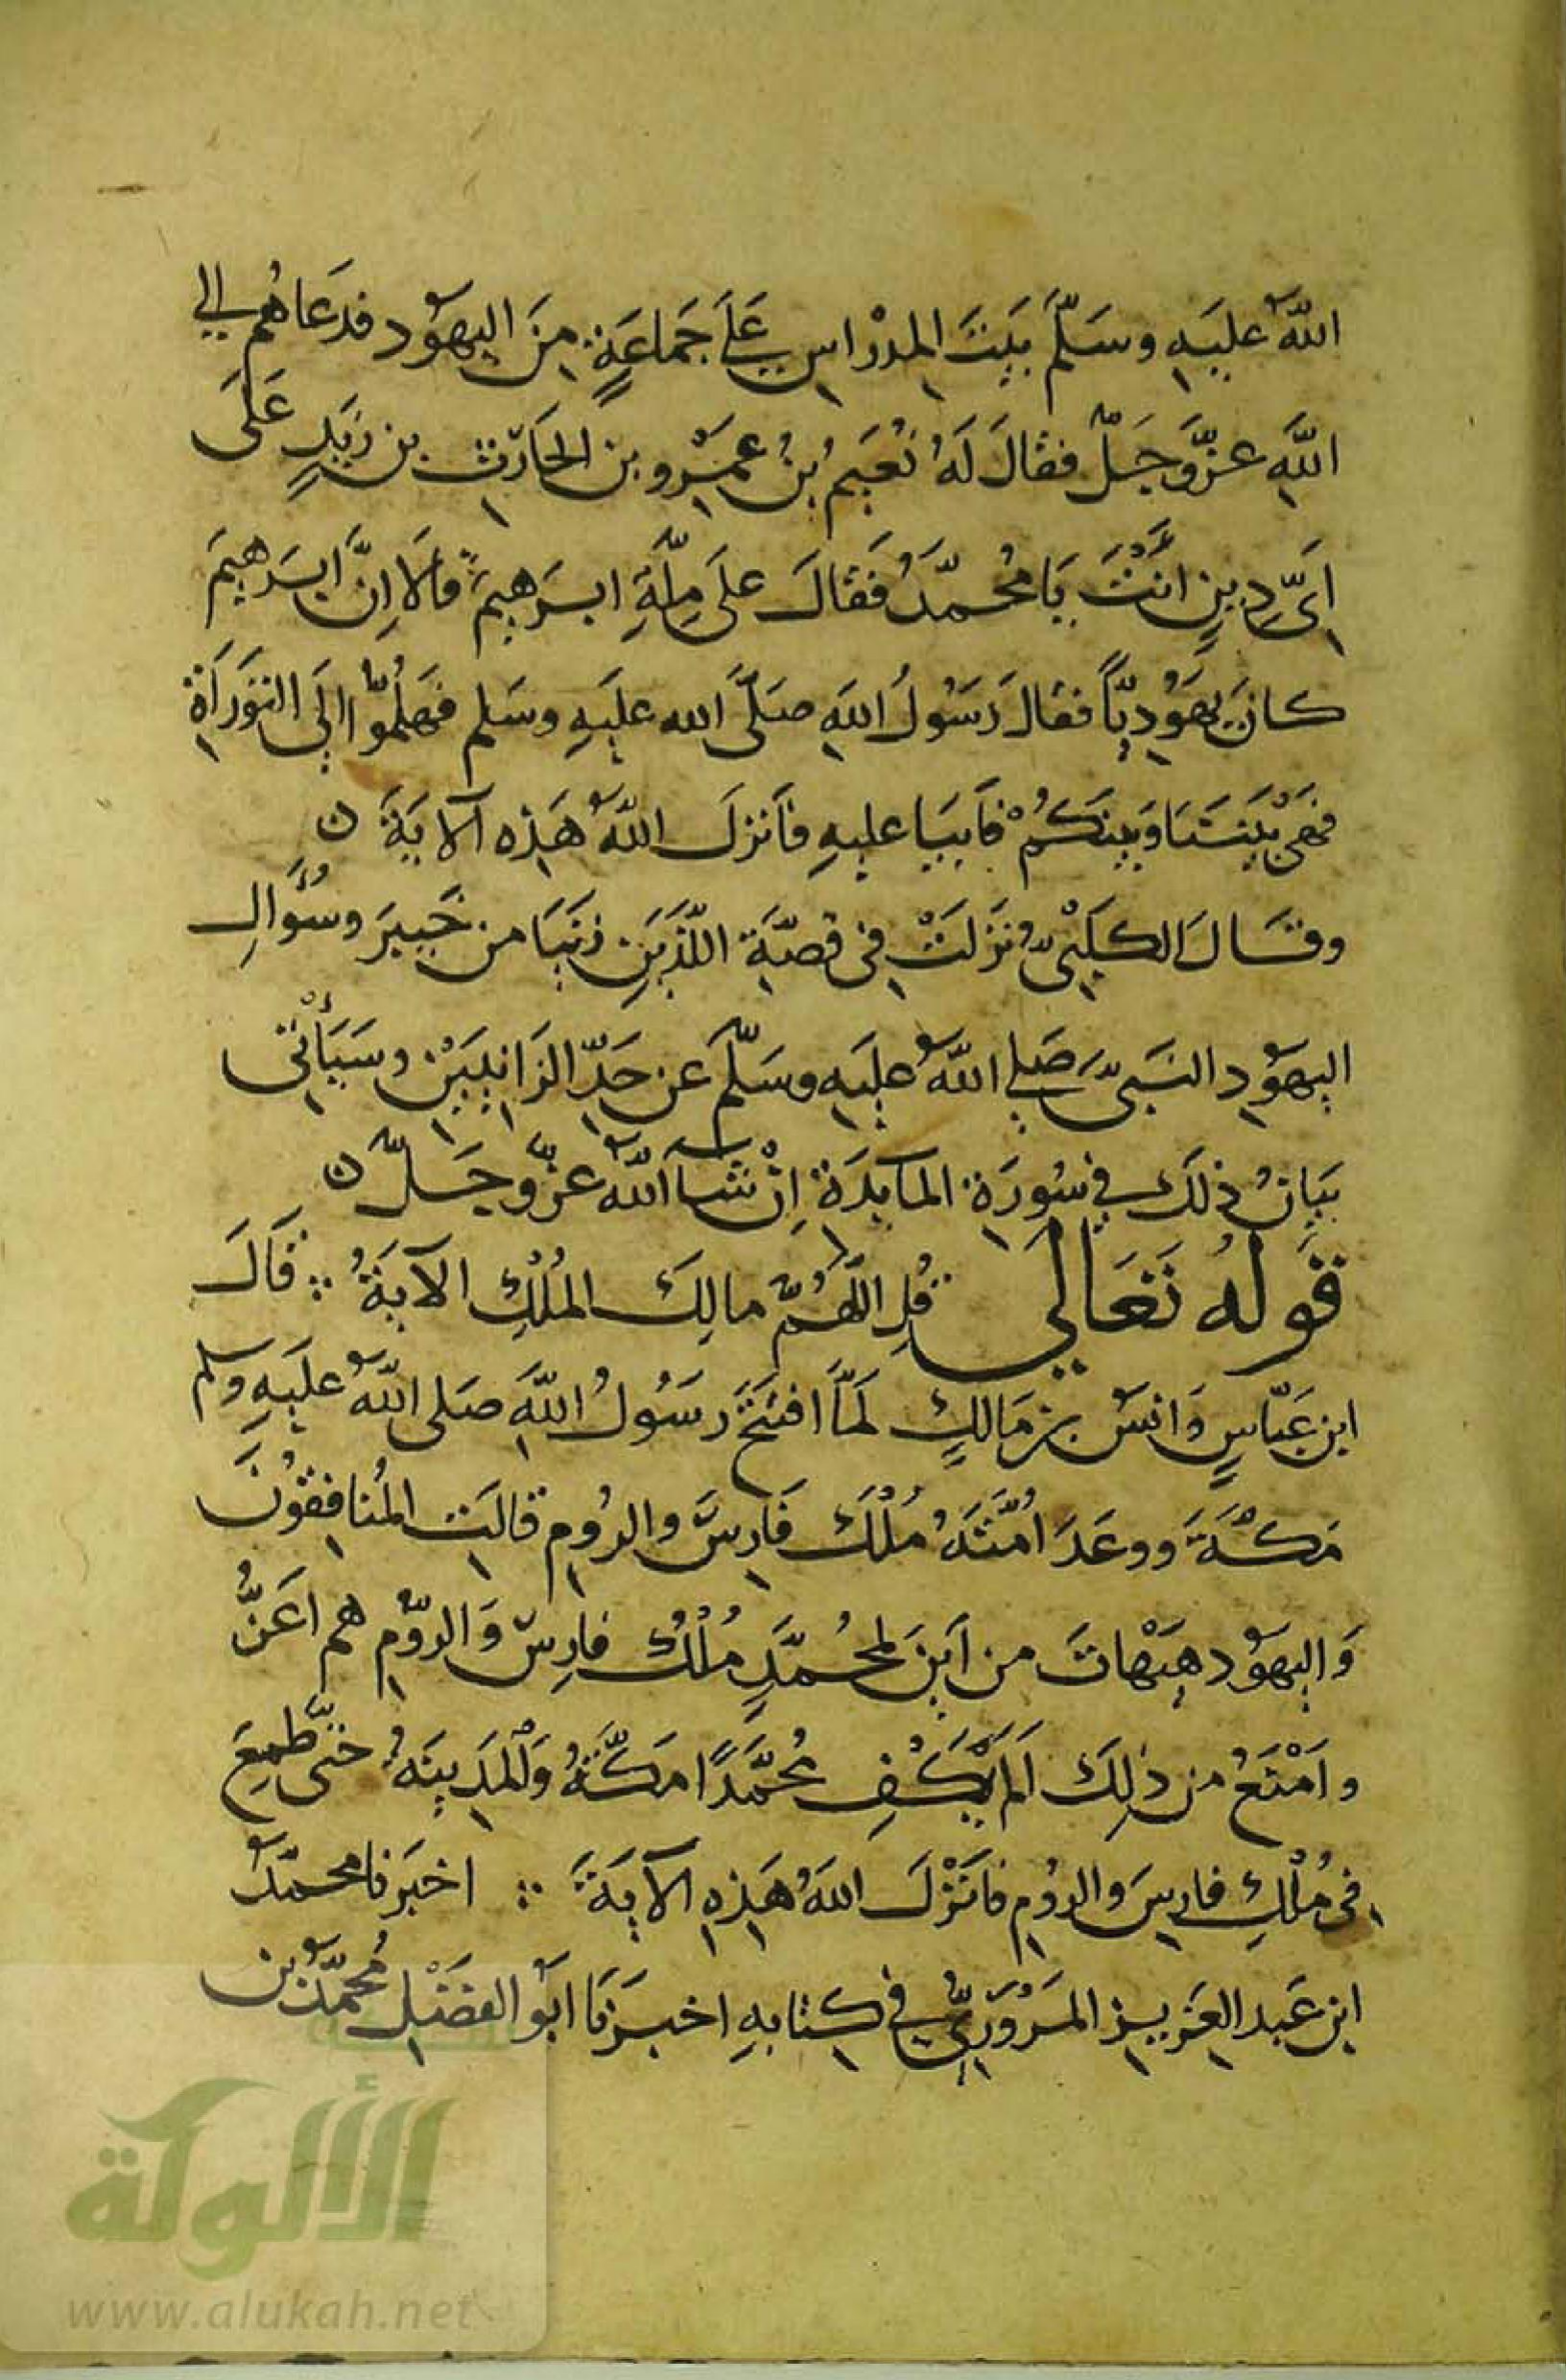 اللهُ عليَهِ وسَلّمَ بَيتَ المدْراسِ عَلَى جَمَاعَةٍ مِنَ اليهَوُد فدَعَاهُم الي
اللهِ عزَّوَجَلّ فقالَ لَهُ نُعَيمُ بنُ عمَرْو بن الحَارِث بن زَيدٍ عَلَى
اَىِّ دِينٍ انْتَ يَا مُحمّدُ فَقَالَ علَى مِلّةِ ابرَهيمَ قالَا اِنَّ ابرَهيمَ
كانَ يهَوُديّاً فقالَ رَسُولُ اللهِ صَلّى الله عليَهِ وسَلم فهَلُمّوا الَى التوَرَاة
فهىَ بَينَنَا وَبينَكُمْ فاَبيَا عليهِ فاَنزلَ اللهُ هَذِه الاَيَة ن
وقَالَ الكلَبْىّ نزَلَتْ فى قصّةِ اللّذَينِ زنَيَا من خَيبرَ وسُؤَالِ
اليهَوُدِ النَبىّ صَلي اللهُ عليَهِ وسَلّمَ عن حَدّ الزَانِيَيْن وسَيَأْتى
بَيانُ ذلكَ فى سُورَة المآيدَة اِنْ شَآ اللهُ عزّ وجَلّ ن
قوله تعَالي قُلِ اللّهُمّ مالِكَ المُلْكِ الآيَةُ ∴ قَالَ
ابن عَبّاسٍ وَانسُ بن مَالكٍ لَمّا افتَتَحَ رَسُولُ اللهِ صَلى اللهُ عليَهِ وسلم
مَكّةَ ووعَدَ امّتَهُ مُلْكَ فَارِسَ والرُومِ قالَتِ المُنافِقُونَ
وَاليهَوُد هيَهْاتَ من اَينَ لمحُمّدٍ مُلْكُ فارِسَ وَالرّومِ هم اعَزُّ
وامَنْعُ من ذلِكَ اَلم يَكْفِ مُحمّدًا مَكّةُ وَالْمَدِينَةُ حَتّى طَمِعَ
فى مُلْكِ فارِسَ والرُومِ فاَنزَلَ اللهُ هَذِهِ الآيَة ∴ اخبَرنا محمّدُ
ابن عَبد العَزيزِ المَرْوَزىّ في كتابهِ اخبرَنَا ابُو الفضَلِ مُحمّدُ بن
الألوكة
www.alukah.net